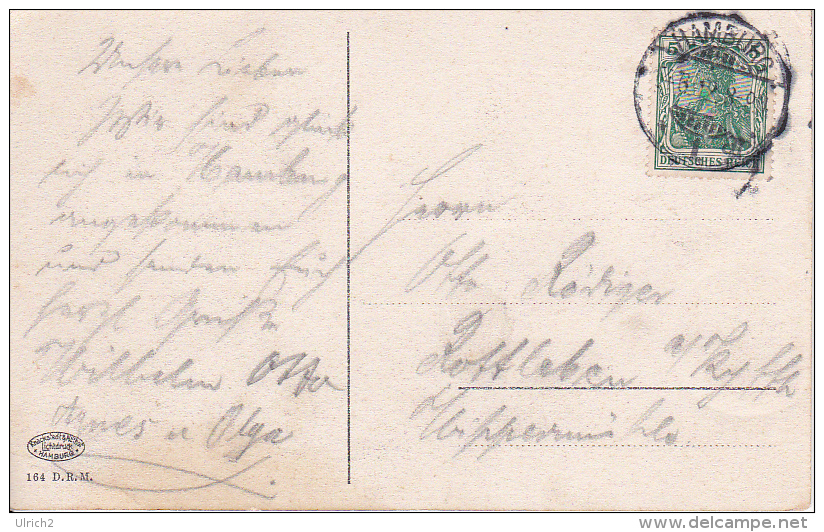 Unsere Lieben
Wir sind glück
lich in Hamburg
angekommen
und senden Euch
herzl Grüße
Wilhelm Otto
u Olga
Knackstedt & Näther
Lichtdruck
HAMBURG
164 D.R.M.
HAMBURG
1
5
DEUTSCHES REICH
Herrn
Otto Rödiger
Rottleben a/Kyffh
Wippermühle
Ulrich2
www.delcampe.net